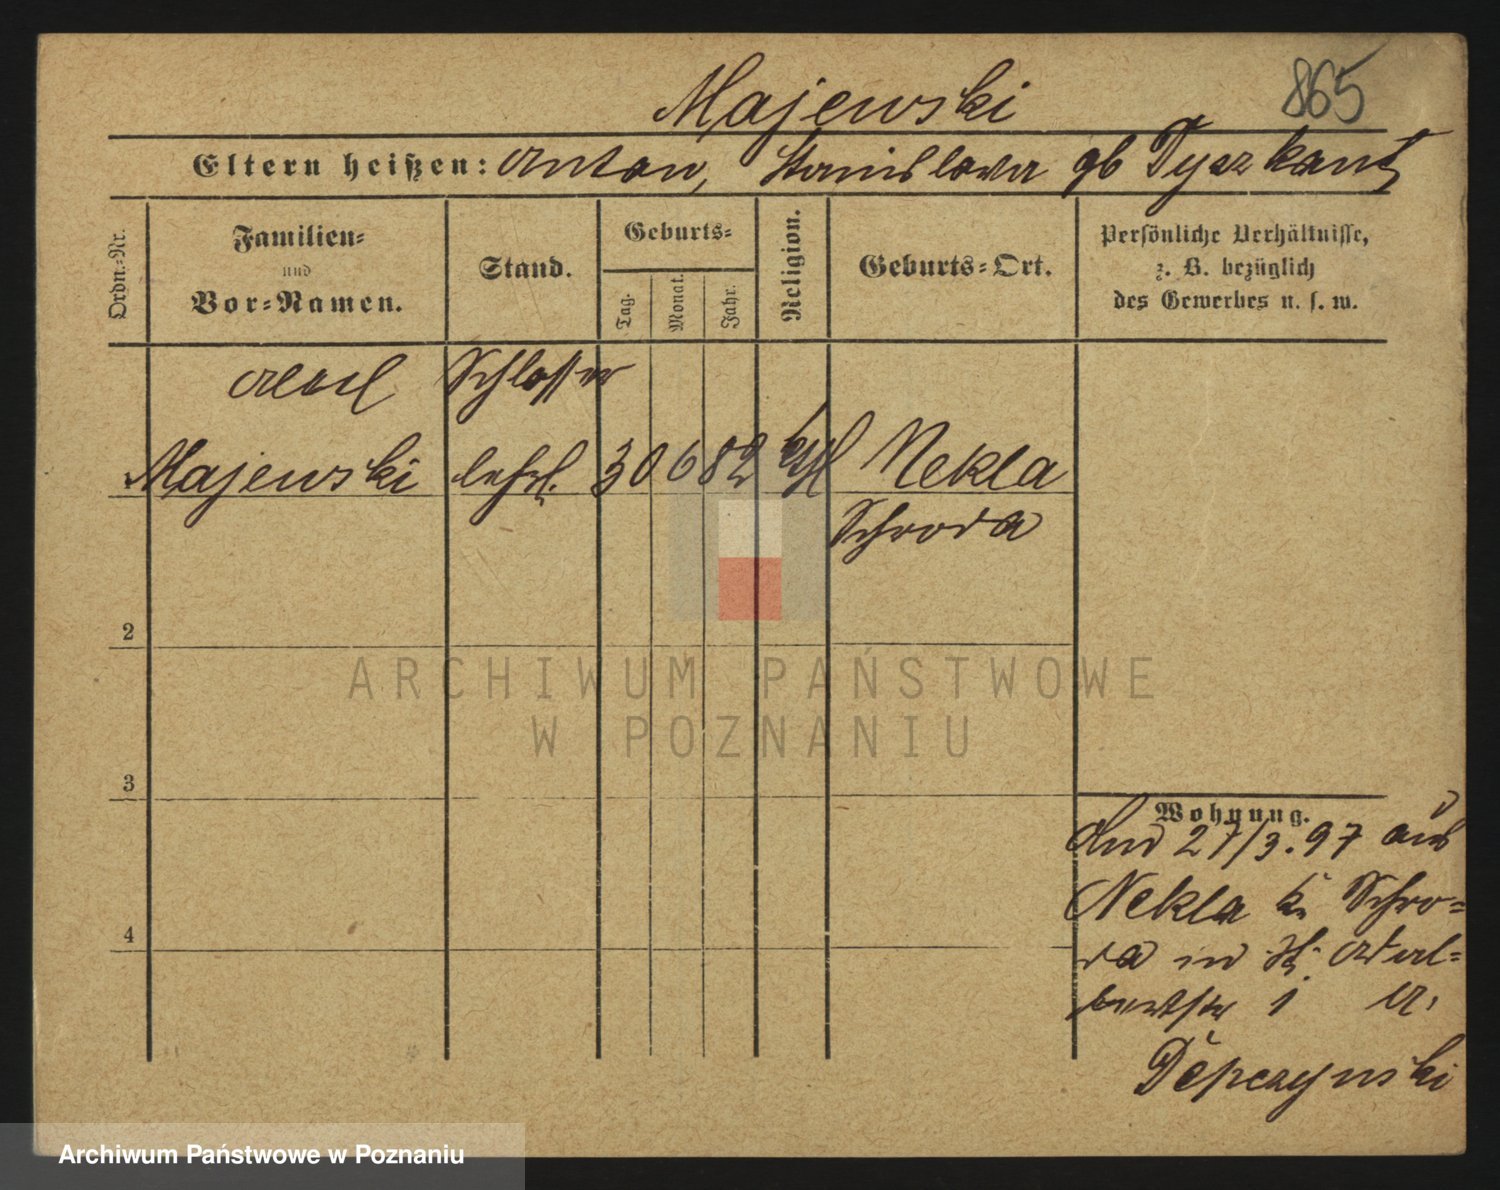 Majewski
865
Eltern heißen: Anton, Stanislawa gb Dyszkant
Ordn.-Nr.
Familien-
und
Vor-Namen.
Stand.
Geburts-
Tag.
Monat.
Jahr.
Religion.
Geburts-Ort.
Persönliche Verhältnisse,
z. B. bezüglich
des Gewerbes u. s. w.
Schlosser
Majewski lehrl. 30 6 82 kth Nekla
Schroda
2
3
4
Wohnung.
27/3.97 aus
Nekla Kr Schro-
da in St. Adal-
bertstr 1
Depczynski
ARCHIWUM PAŃSTWOWE
W POZNANIU
Archiwum Państwowe w Poznaniu